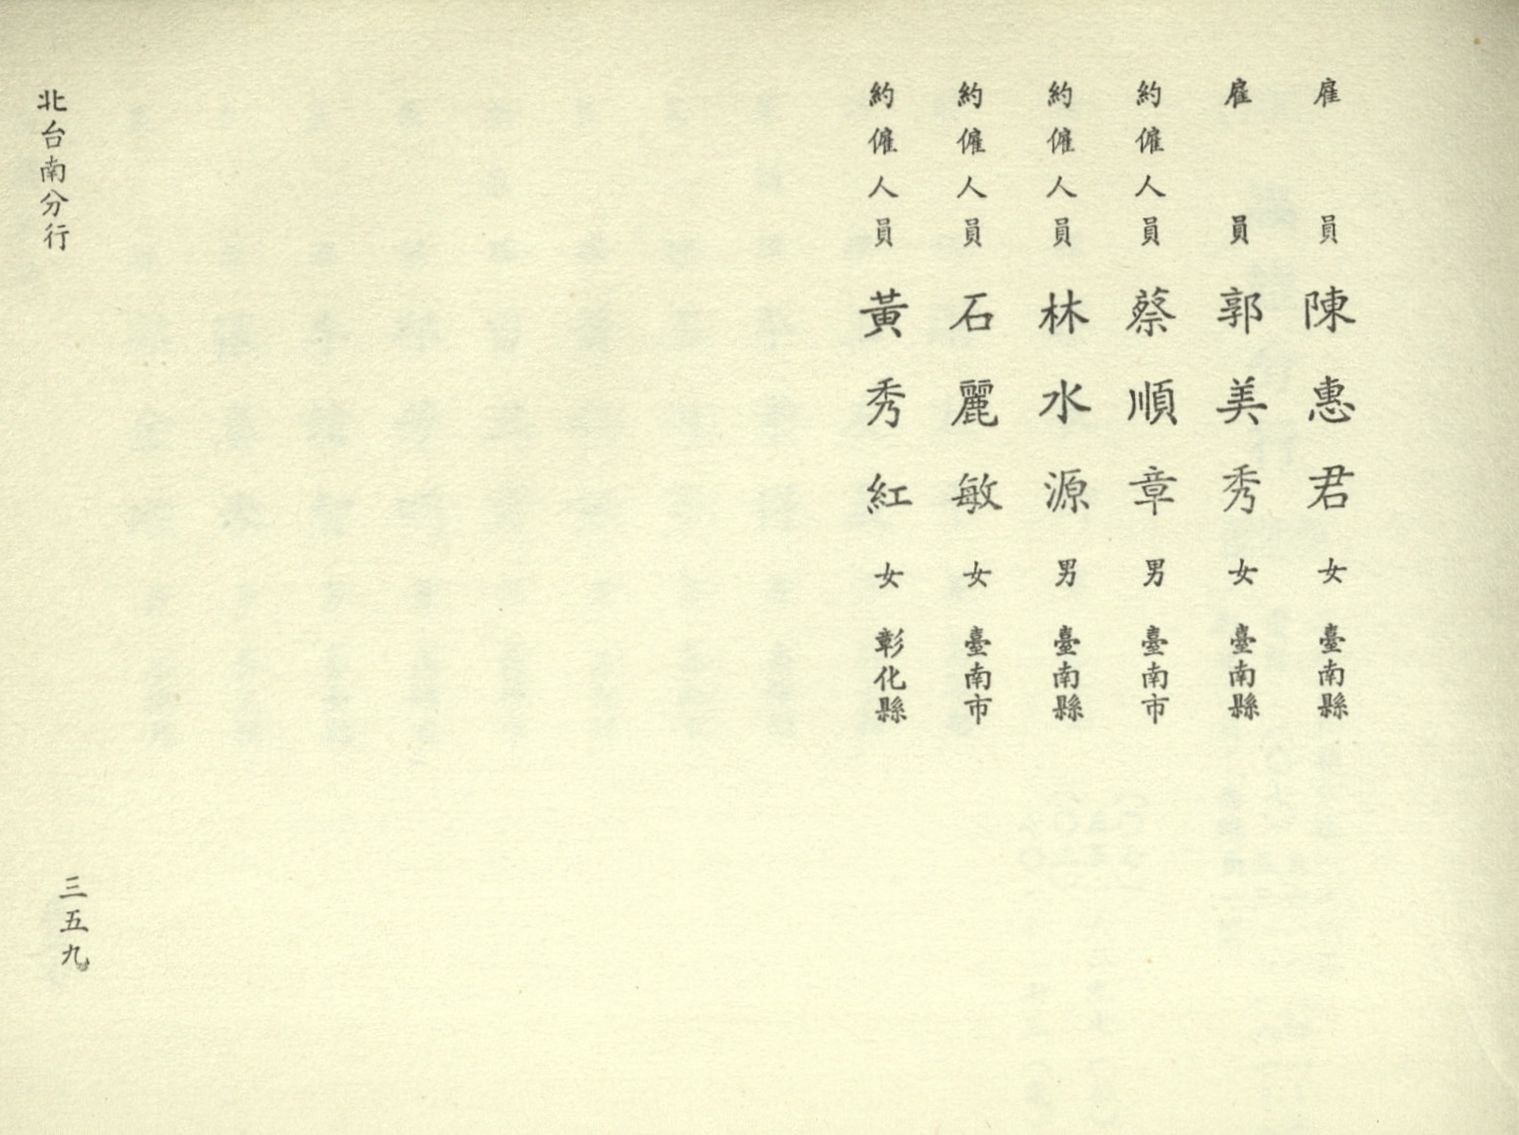 雇員陳惠君女臺南縣
雇員郭美秀女臺南縣
約僱人員蔡順章男臺南市
約僱人員林水源男臺南縣
約僱人員石麗敏女臺南市
約僱人員黃秀紅女彰化縣
北台南分行
三五九